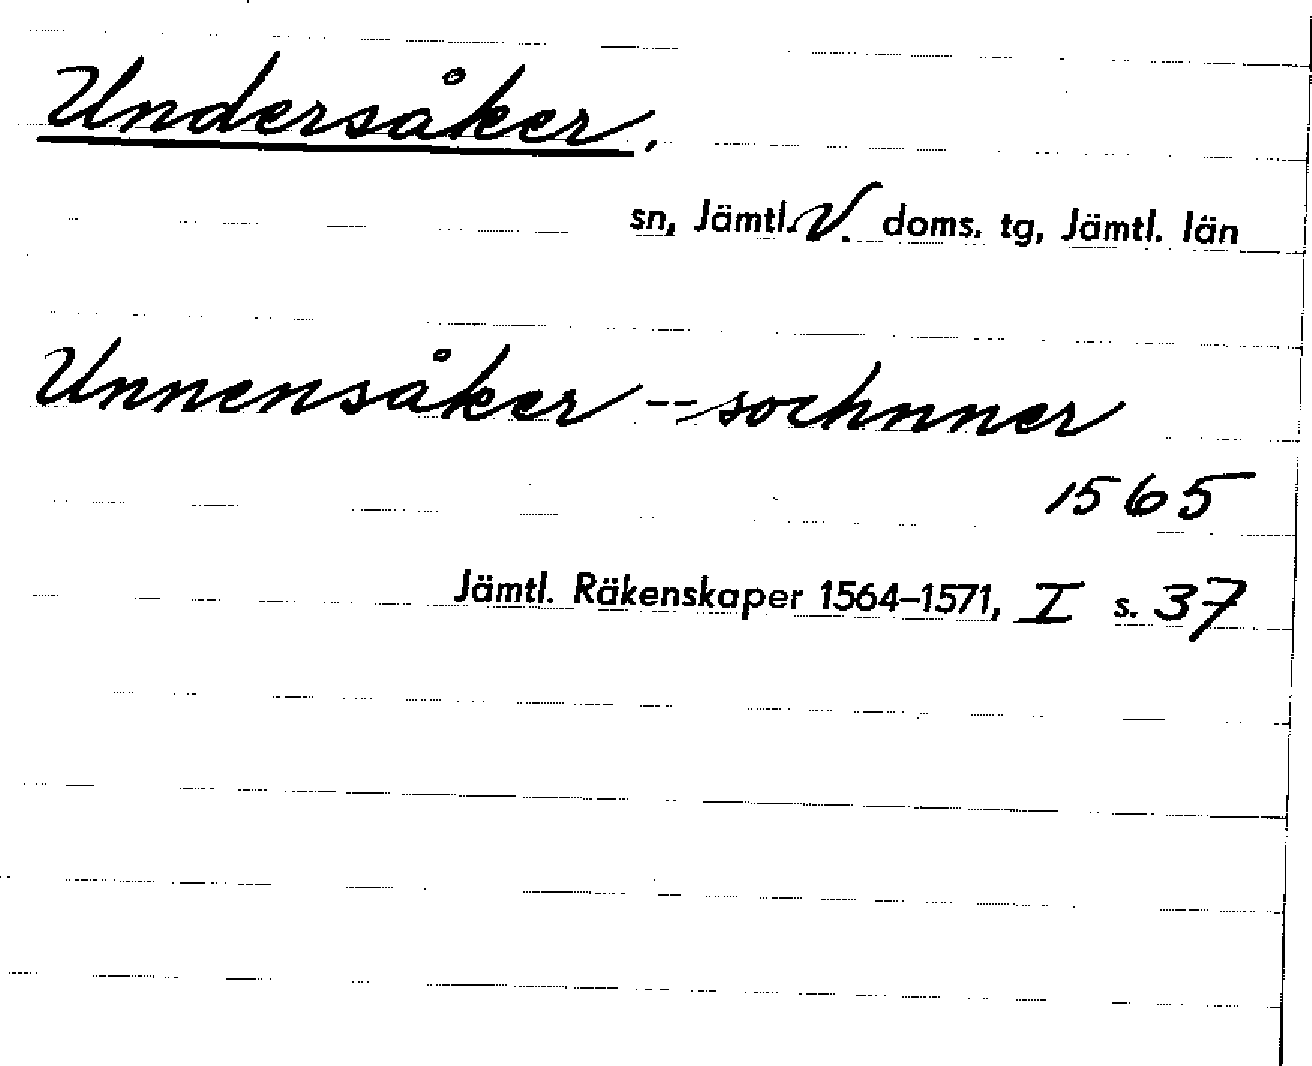 Undersåker,
sn, Jämtl. V. doms. tg, Jämtl. län
Unnensåker -- sochnner
1565
Jämtl. Räkenskaper 1564–1571, I s. 37